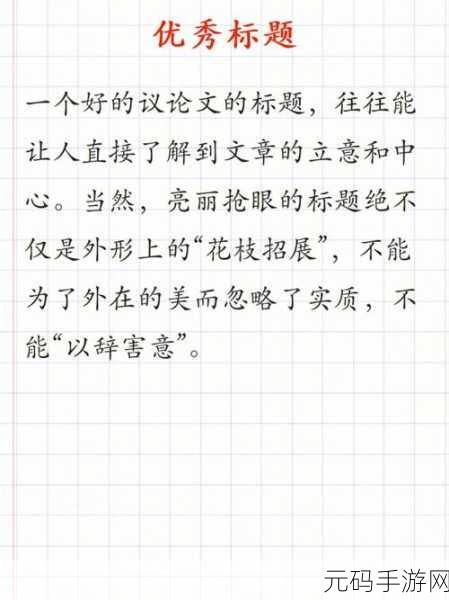 优秀标题
一个好的议论文的标题，往往能
让人直接了解到文章的立意和中
心。当然，亮丽抢眼的标题绝不
仅是外形上的“花枝招展”，不能
为了外在的美而忽略了实质，不
能“以辞害意”。
元码手游网